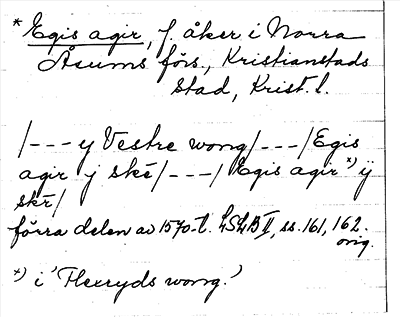 * Egis agir, f. åker i Norra
Åsums förs., Kristianstads
stad, Krist. l.
/---y Vestre wong/---/Egis
agir y skě/---/ Egis agir *) ÿ
skě/
förra delen av 1570-t. LSLB II, ss. 161, 162.
orig.
*) i 'Flexryds wong.'